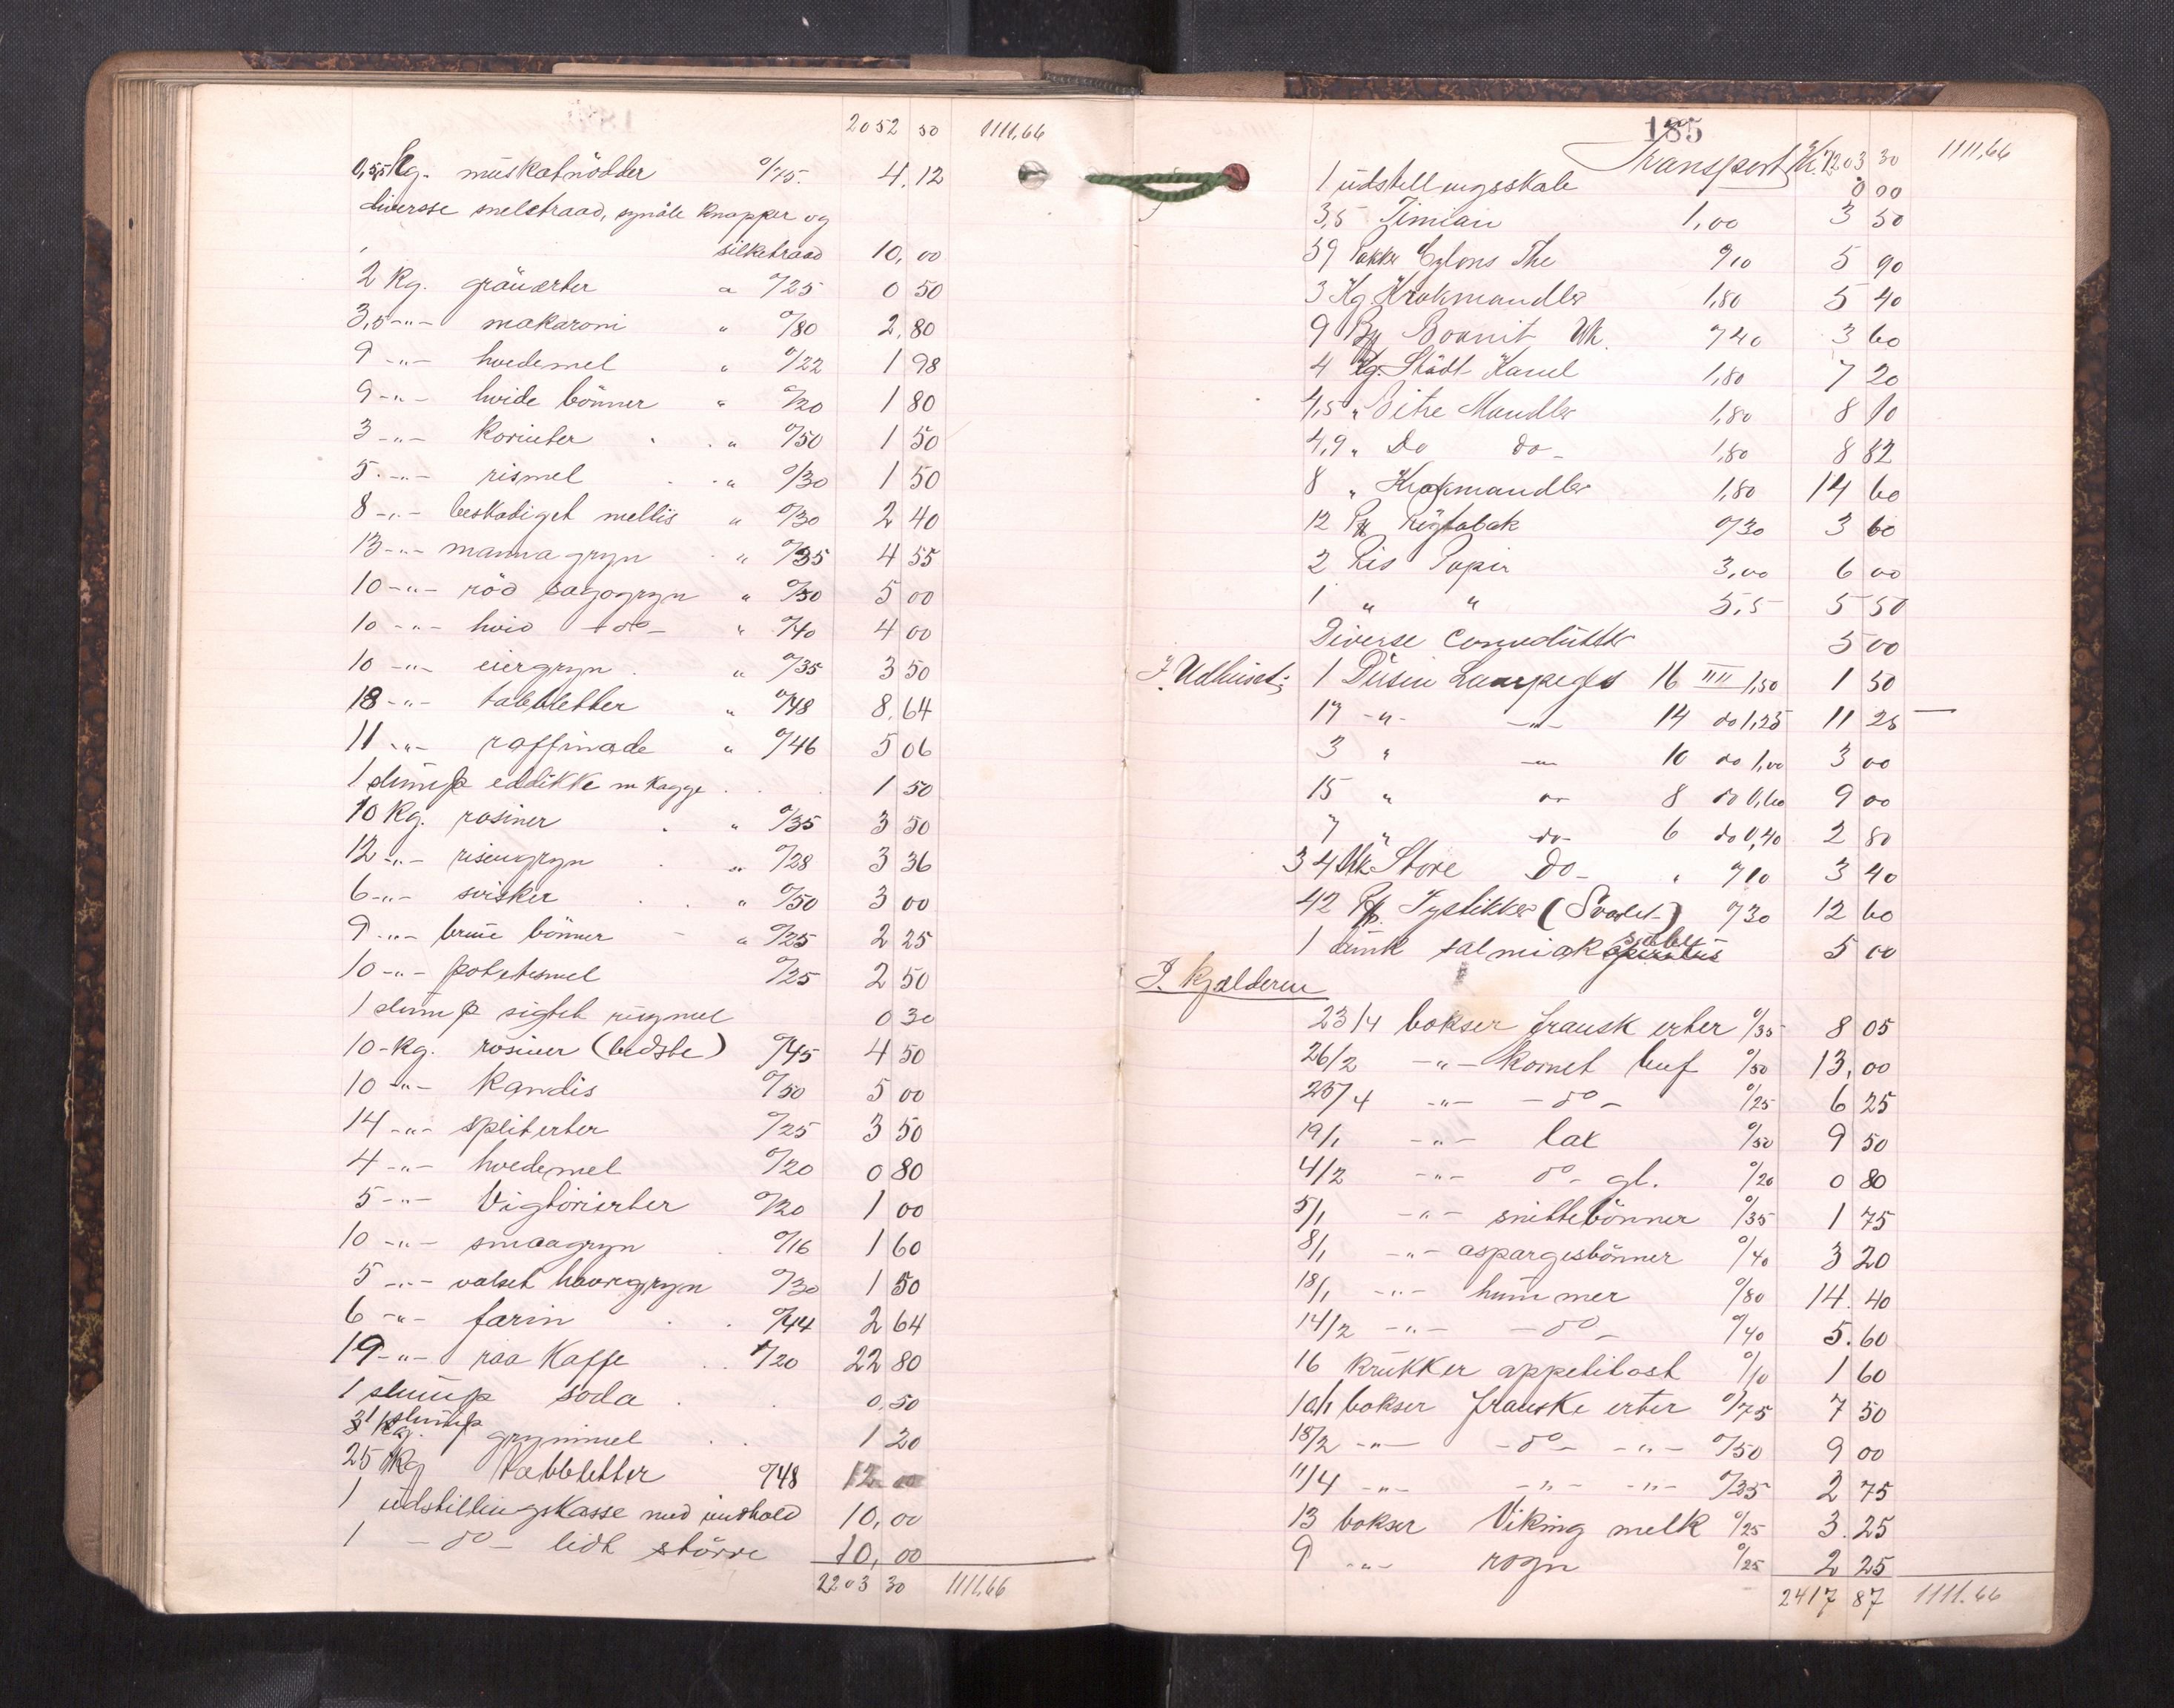 2052 50 1111,66
0,55 kg. muskatnödder 0/75. 4,12
diversse snelstraad, synåle knapper og
silketraad 10,00
2 kg. gröuærter a 0/25 0 50
3,5 -"- makaroni " 0/80 2,80
9 -"- hvedemel " 0/22 1 98
9 -"- hvide bönner " 0/20 1 80
3 -"- korinter " 0/50 1 50
5 -"- rismel " 0/30 1 50
8 -"- beskadiget mellis " 0/30 2 40
13 -"- manna gryn " 0/35 4 55
10 -"- röd sagogryn " 0/50 5 00
10 -"- hvid -do- " 0/40 4 00
10 -"- eiergryn " 0/35 3 50
18 -"- tabbletter " 0/48 8,64
11 -"- raffinade " 0/46 5 06
1 slump eddikke m kagge 1 50
10 Kg. rosiner " 0/35 3 50
12 -"- risengryn " 0/28 3 36
6 -"- svisker " 0/50 3 00
9 -"- brune bönner " 0/25 2 25
10 -"- potetesmel 0/25 2 50
1 slump sigtet rugmel 0 30
10 -kg. rosiner (bedste) 0/45 4 50
10 -"- kandis 0/50 5 00
14 -"- spliterter 0/25 3 50
4 -"- hvedemel 0/20 0 80
5 -"- Vigtörierter 0/20 1 00
10 -"- smaagryn 0/16 1 60
5 -"- valset havregryn 0/30 1 50
6 -"- farin 0/44 2 64
19 -"- raa Kaffe 1/20 22 80
1 slump soda 0,50
1 slump grynmel 1 20
25 Kg tabbletter 0/48 12 00
1 udstillingskasse med indhold 10,00
1 -do- lidt större 10,00
2203 30 1111,66
185
Transport Kr. 2203 30 1111,66
1 udstellingsskale 0 90
3,5 Timian 1,00 3 50
59 Pakker Cylons The 0/10 5 90
3 Kg Krakmandler 1,80 5 40
9 Bonnit 0/40 3 60
4 Kg. Stödt Kanel 1,80 7 20
4,5 " Bitre Mandler 1,80 8 10
4,9 " Do do- 1,80 8 82
8 " Krakmandler 1,80 14 60
12 Pk Rögtobak 0/30 3 60
2 Ris Papir 3,00 6 00
1 " " 5,5 5 50
Diverse Convolutter 5 00
I Udhuset: 1 Dusin Lampeglas 16 IIII 1,50 1 50
17 -"- -"- 14 do 1,25 11 25
3 " -"- 10 do 1,00 3 00
15 " -"- 8 do 0,60 9 00
7 " -do- 6 do 0,40 2 80
34 Stk Store Do- " 0/10 3 40
42 Pk. Fystikker (Svovlet-) 0/30 12 60
1 dunk salmiak sæbe 5 00
I kjælderen
23/4 bokser fransk erter 0/35 8 05
26/2 -"- kornet buf 0/50 13,00
25/4 -"- -do- 0/25 6 25
19/1 -"- lax 0/50 9 50
4/2 -"- do- gl. 0/20 0 80
5/1 -"- snittebönner 0/35 1 75
8/1 -"- aspargesbönner 0/40 3 20
18/1 -"- hummer 0/80 14.40
14/2 -"- -do- 0/40 5.60
16 krukker appetitost 0/10 1 60
10/1 bokser franske erter 0/75 7 50
18/2 -"- -do- -"- 0/50 9 00
11/4 -"- -"- -"- 0/25 2 75
13 bokser Viking melk 0/25 3.25
9 -"- rogn 0/25 2 25
2417 87 1111.66